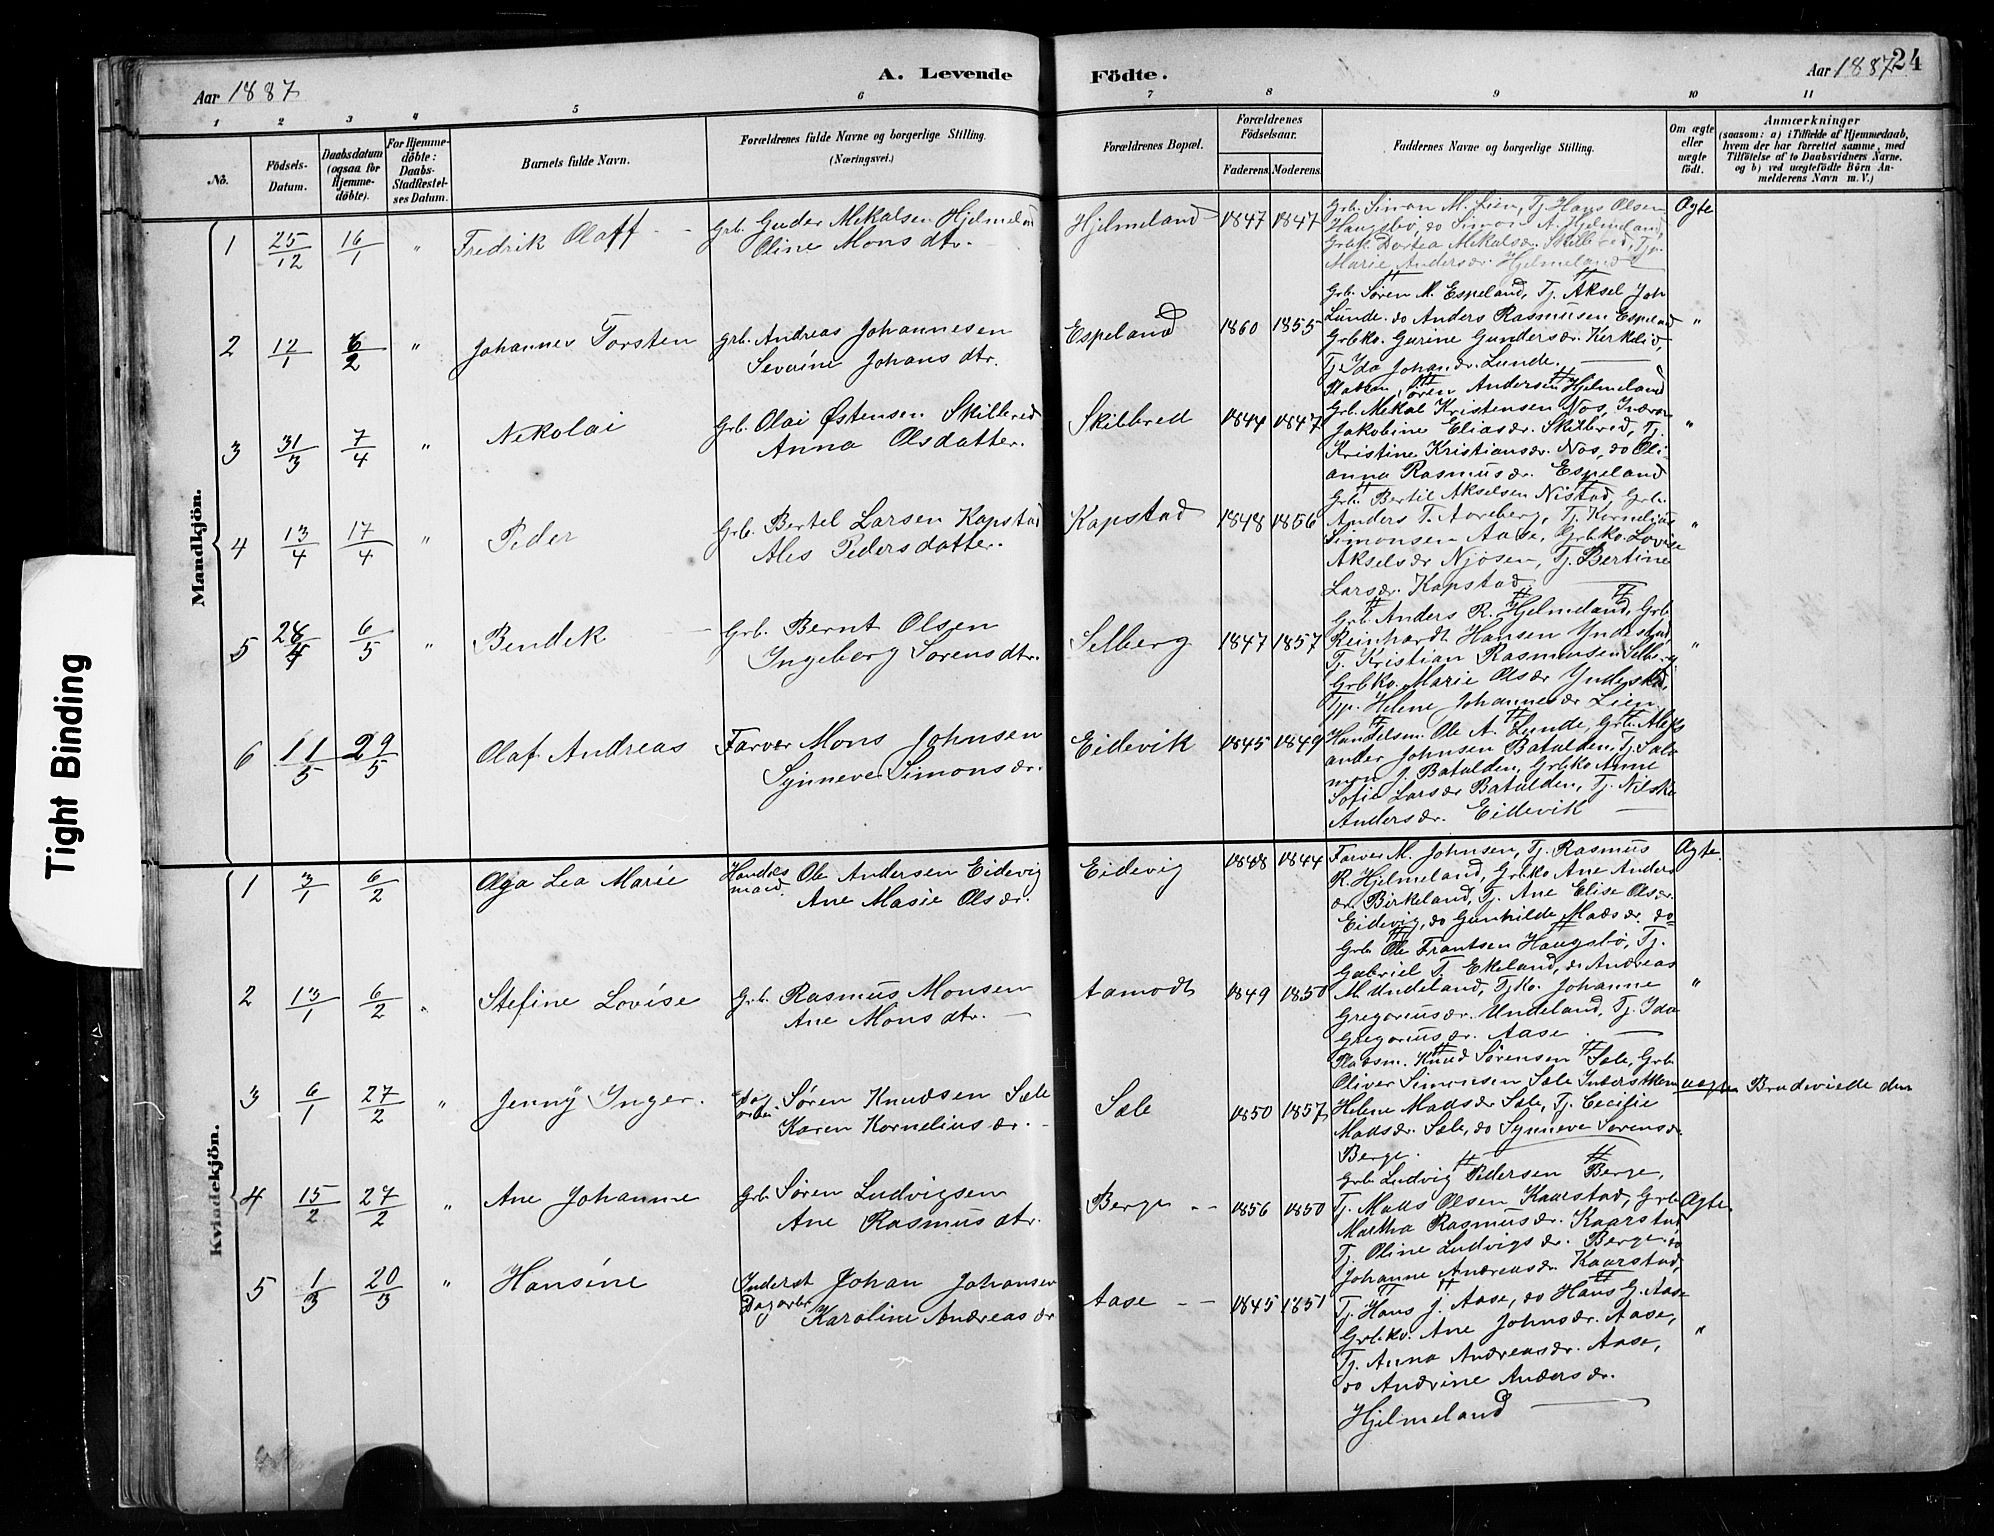 24
Aar 1887
A. Levende Födte.
Aar 1887
1 2 3 4 5 6 7 8 9 10 11
No.
Födsels-Datum.
Daabsdatum (ogsaa for Hjemme-döbte).
For Hjemme-döbte: Daabs-Stadfæstel-ses Datum.
Barnets fulde Navn.
Forældrenes fulde Navne og borgerlige Stilling. (Næringsvei.)
Forældrenes Bopæl.
Forældrenes Födselsaar.
Faderens. Moderens.
Faddernes Navne og borgerlige Stilling.
Om ægte eller uægte födt.
Anmærkninger
(saasom: a) i Tilfælde af Hjemmedaab, hvem der har forrettet samme, med Tilföielse af to Daabsvidners Navne, og b) ved uægtefödte Börn An-melderens Navn m. V.)
Mandkjön.
1 25/12 16/1 " Fredrik Olaff Grb. Gudar Mikalsen Hjelmeland
Oline Monsdtr. Hjelmeland 1847 1847 Ægte
Grb. Simon M. Lien, Tj. Hans Olsen
Haugsbø, do Simon A. Hjelmeland,
Grbk. Dortea Mikalsdr. Skilbred, Tj.
Marie Andersdr. Hjelmeland
2 12/1 6/2 " Johannes Torsten Grb. Andreas Johannesen
Severine Johansdtr. Espeland 1860 1855 "
Grb. Søren M. Espeland, Tj. Aksel Joh
Lunde, do Anders Rasmusen Espeland
Grbko. Gurine Gundersdr. Kirkelid,
Tj. Ida Johansdr. Lunde.
3 31/3 7/4 " Nikolai Grb. Olai Østensen Skilbred
Anna Olsdatter. Skilbred 1844 1847 "
Søren Andersen Hjelmeland
Grb. Mikal Kristensen Nos,
Jakobine Eliasdr. Skilbred, Tj.
Kristine Kristiansdr. Nos, do Oli-
anna Rasmusdr. Espeland
4 13/4 17/4 " Peder Grb. Bertel Larsen Kapstad
Ales Pedersdatter. Kapstad 1848 1856 "
Grb. Bertil Akselsen Nistad, Grb.
Anders T. Aareberg, Tj. Kornelius
Simonsen Aase, Grbko. Lovise
Akselsdr Njøsen, Tj. Bertine
Larsdr. Kapstad.
5 28/4 6/5 " Bendik Grb. Bernt Olsen
Ingeborg Sørensdtr. Selberg 1847 1857 "
Grb. Anders R. Hjelmeland, Grb.
Reinhardt Hansen Yndestad,
Tj. Kristian Rasmussen Selberg.
Grbko. Marie Olsdr Yndestad,
Tjp. Helene Johannesdr Lien
6 11/5 29/5 Olaf Andreas Farver Mons Johnsen
Synneve Simonsdr. Eidevik 1845 1849
Handelsm. Ole A. Lunde, Grb. Aleks
ander Johnsen Batalden, Tj. Salo
mon J. Batalden, Grbko Anne
Sofie Larsdr Batalden, Tj. Nilska
Andersdr. Eidevik
Kvindekjön.
1 3/1 6/2 Olga Lea Marie Handels
mand Ole Andersen Eidevig
Ane Marie Olsdr. Eidevig 1848 1844 Ægte.
Farver M. Johnsen, Tj. Rasmus
R. Hjelmeland, Grbko Ane Anders
dr. Birkeland, Tj. Ane Elise Olsdr.
Eidevig, do Gunhilde Madsdr. do
2 13/1 6/2 " Stefine Lovise Grb. Rasmus Monsen
Ane Monsdtr. Aamodt 1849 1850 "
Grb. Ole Frantsen Haugsbø, Tj.
Gabriel T. Ekeland, do Andreas
M. Undeland, Tjko. Johanne
Gregoriusdr. Undeland, Tj. Ida
Gregoriusdr. Aase.
3 6/1 27/2 " Jenny Inger. Dag
arbei. Søren Knudsen Sæle
Karen Korneliusdr. Sæle 1850 1857 uægte Brudeviede den
Pladsm. Knud Sørensen Sæle, Grb
Oliver Simonsen Sæle
Helene Madsdr Sæle, Tj. Cecilie
Madsdr. Sæle, do Synneve Sørensdr
Berge.
4 15/2 27/2 " Ane Johanne Grb. Søren Ludvigsen
Ane Rasmusdtr. Berge 1856 1850 Ægte
Grb. Ludvig Pedersen Berge,
Tj. Mads Olsen Kaarstad, Grb
Martha Rasmusdr. Kaarstad
Tj. Oline Ludvigsdr. Berge, do
Johanne Andreasdr. Kaarstad,
5 1/3 20/3 " Hansine Inderst
Dagarbr Johan Johansen
Karoline Andreasdr Aase 1845 1851 "
Tj. Hans J. Aase, do Hans G. Aase
Grbko. Ane Johnsdr. Aase,
Tj. Anna Andreasdr. Aase,
do Andrine Andersdr.
Hjelmeland
Tight Binding